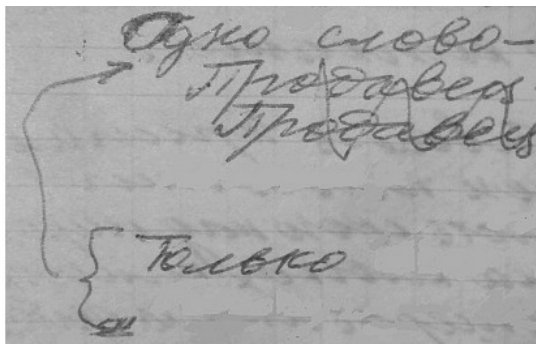 Одно слово-
Продавец
Продавец
Только